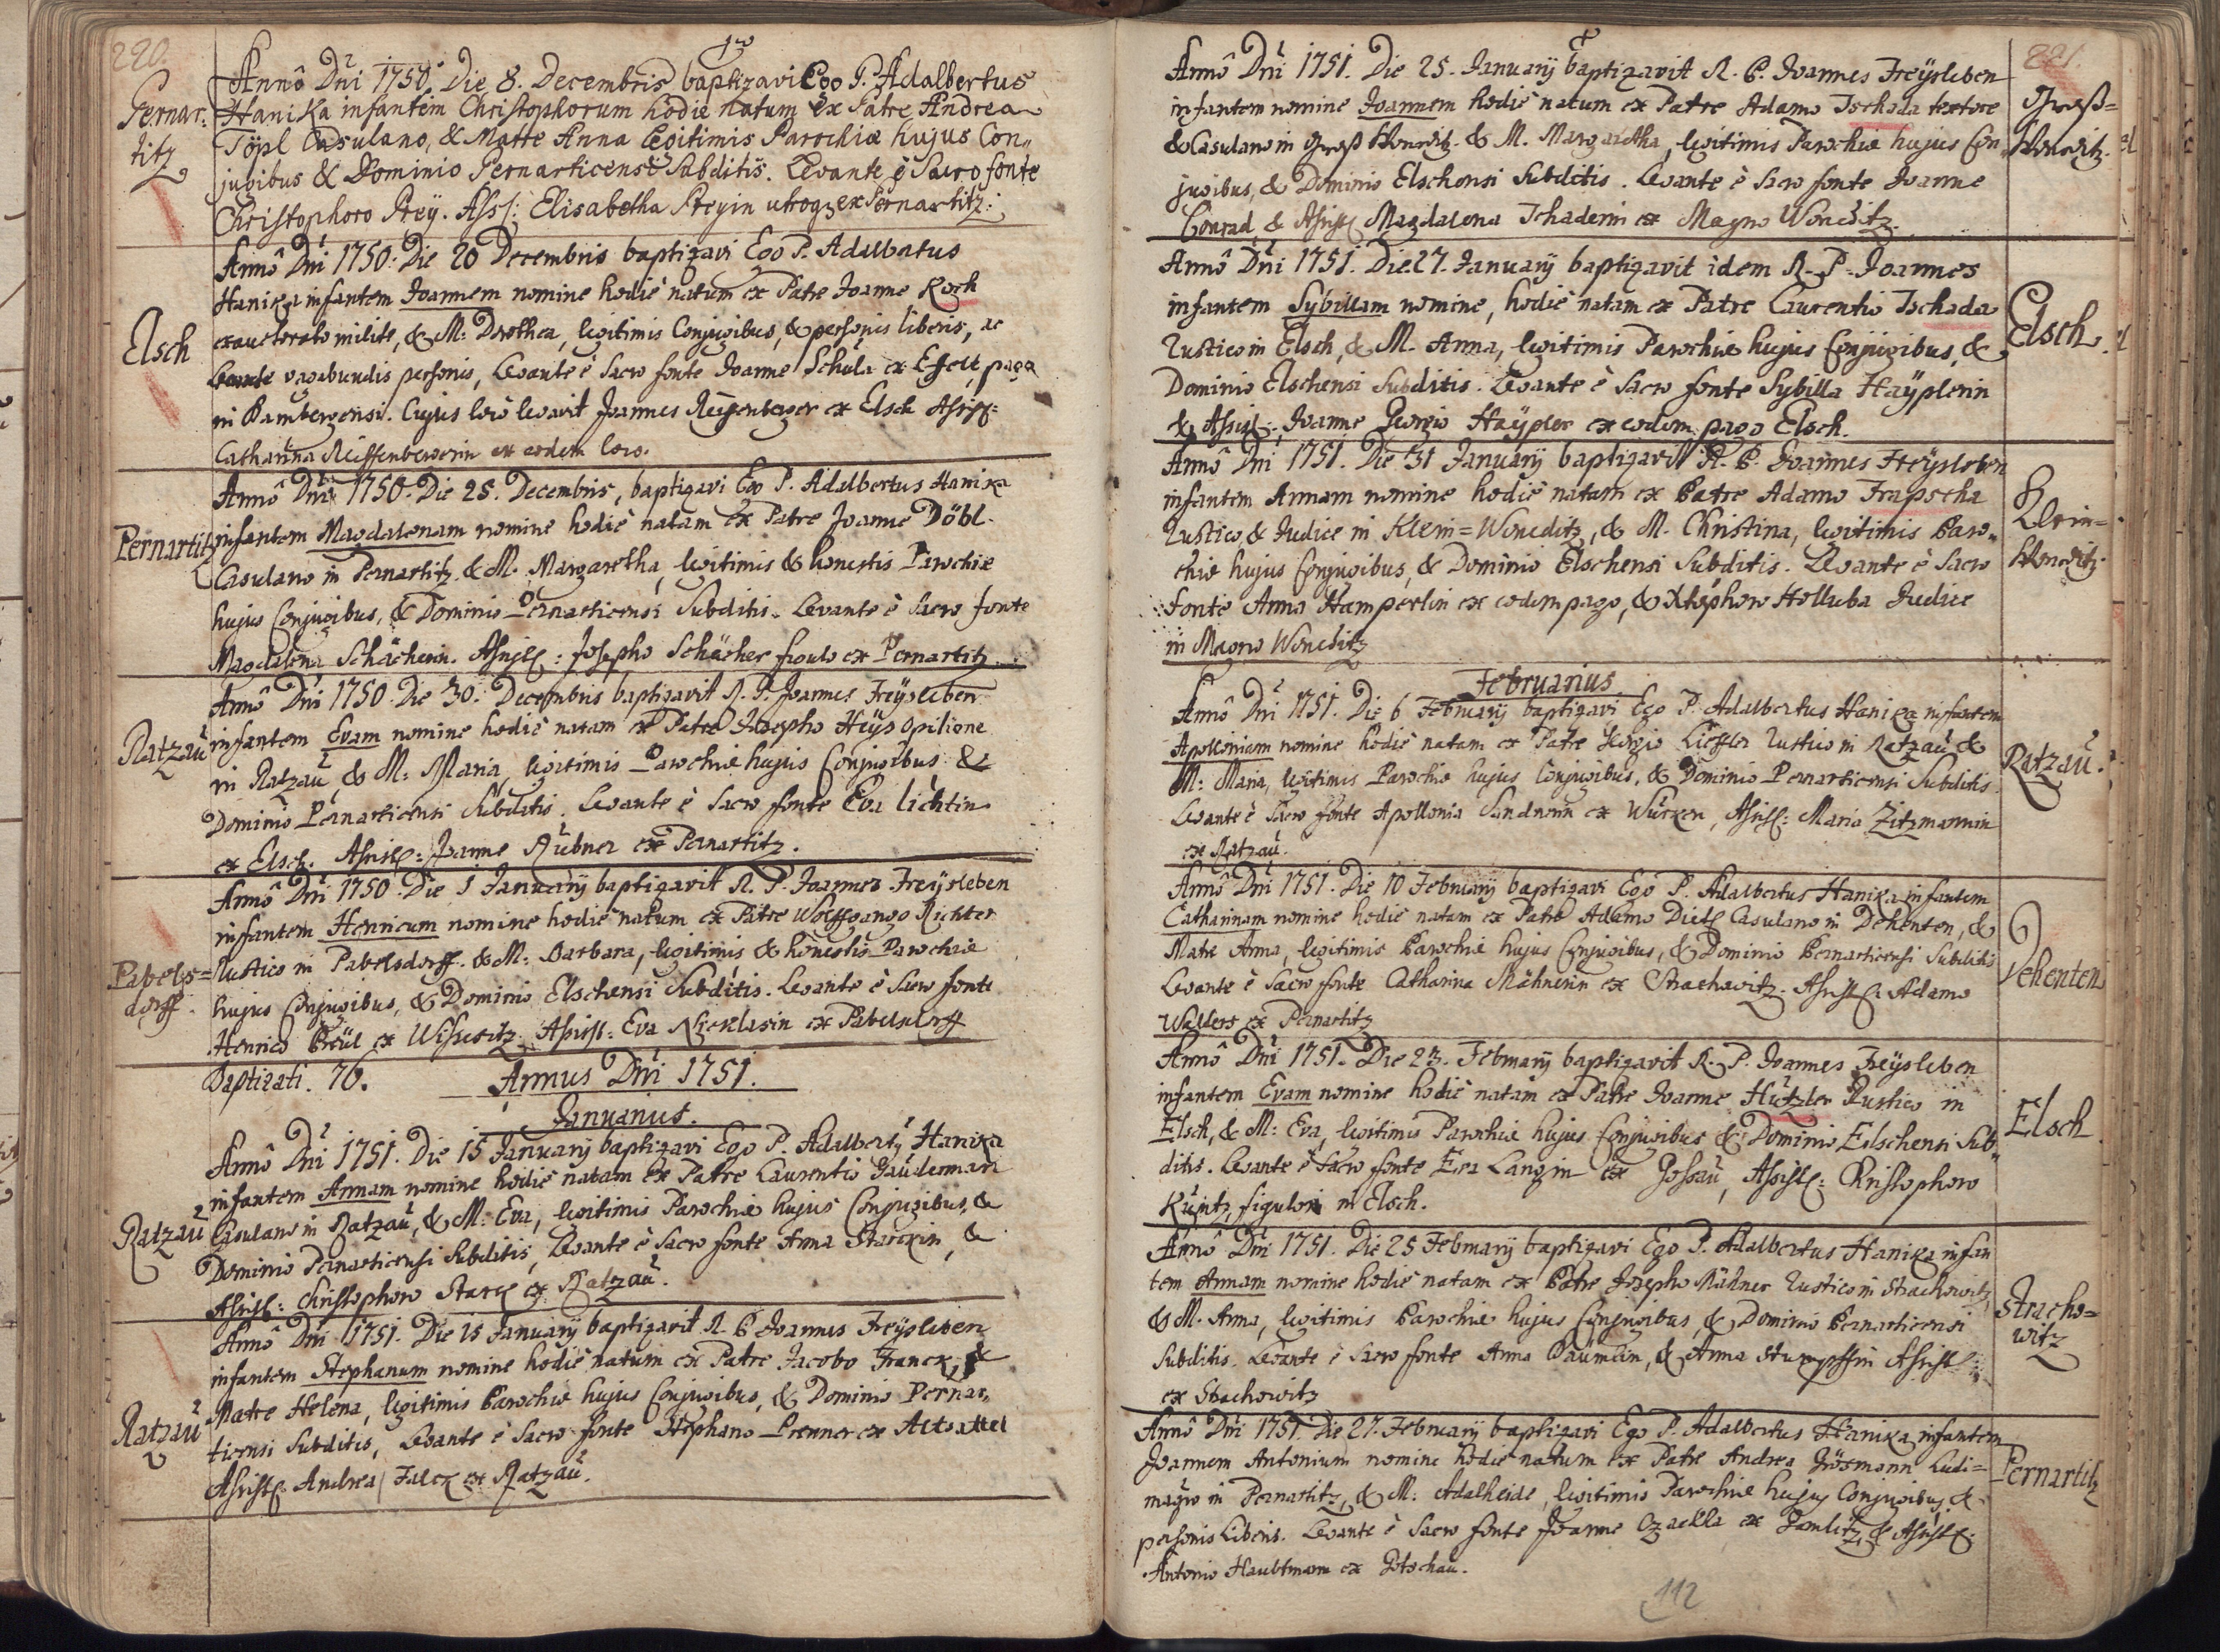 220.
Pernar:
titz
Annô Dni 1750. Die 8. Decembris baptizavi Ego P. Adalbertus
Hanika infantem Christophorum hodie natum ex Patre Andrea
Töpl Casulano, & Matre Anna legitimis Parochiæ hujus Con„
jugibus & Dominio Pernarticensi Subditis. Levante è Sacro fonte
Christophoro Preÿ. Ass: Elisabetha Preyin utroqz ex Pernartitz.
Elsch
Annô Dni 1750. Die 20 Decembris baptizavi Ego P. Adalbertus
Hanika infantem Joannem nomine hodiè natum ex Patre Joanne Koch
exauctorato milite, & M: Dorothea, legitimis Conjugibus, & personis liberis, ac
vagabundis personis, Levante è Sacro fonte Joanne Schula ex pago
in Bambergensi. Cujus locô levavit Joannes Reiffenberger ex Elsch Assist:
Catharina Reiffenbergerin ex eodem loco.
Pernartitz
Annô Dni 1750. Die 25. Decembris, baptizavi Ego P. Adalbertus Hanika
infantem Magdalenam nomine hodiè natam ex Patre Joanne Döbl.
Casulano in Pernartitz & M. Margaretha, legitimis & honestis Parochiæ
hujus Conjugibus, & Dominio Pernarticensi Subditis. Levante è Sacro fonte
Magdalena Schächerin. Assist: Josepho Schächer figulo ex Pernartitz.
Ratzau
Annô Dni 1750 Die 30. Decembris baptizavit R. P. Joannes Freÿsleben
infantem Evam nomine hodiè natam ex Patre Josepho Heÿs Opilione
in Ratzau, & M: Maria, legitimis Parochiæ hujus Conjugibus &
Dominio Pernarticensi Subditis. Levante è Sacro fonte Eva Lichtin
ex Elsch. Assist: Joanne Rübner ex Pernartitz.
Pabels=
dorff.
Annô Dni 1750. Die 1 Januarÿ baptizavit R. P. Joannes Freÿsleben
infantem Henricum nomine hodiè natum ex Patre Wolffgango Richter
Rustico in Pabelsdorff. & M: Barbara, legitimis & honestis Parochiæ
hujus Conjugibus, & Dominio Elschensi Subditis. Levante è Sacro fonte
Henrico Preül ex Assist: Eva Nicklasin ex Pabelsdorff
Baptizati. 76. Annus Dni 1751.
Januarius.
Ratzau
Annô Dni 1751. Die 15 Januarÿ baptizavi Ego P. Adalbertÿ Hanika
infantem Annam nomine hodiè natam ex Patre Laurentio Gauderman
Casulano in Ratzau, & M: Eva, legitimis Parochiæ hujus Conjugibus, &
Dominio Pernarticensi Subditis, Levante è Sacro fonte Anna Starckin, &
Assist: Christophoro Starck ex Ratzau.
Ratzau
Annô Dni 1751. Die 15 Januarÿ baptizavit R. P. Joannes Freÿsleben
infantem Stephanum nomine hodiè natum ex Patre Jacobo Franck, &
Matre Helena, legitimis Parochiæ hujus Conjugibus, & Dominio Pernar„
ticensi Subditis, Levante è Sacro fonte Stephano Prenner ex Altsattel
Assist: Andrea Falck ex Ratzau.
221.
Groß=
Woneditz.
Annô Dni 1751. Die 25. Januarÿ baptizavit R. P. Joannes Freÿsleben
infantem nomine Joannem hodiè natum ex Patre Adamo Tschada textore
& Casulano in Groß Woneditz. & M. Margaretha, legitimis Parochiæ hujus Con„
jugibus, & Dominio Elschensi Subditis. Levante è Sacro fonte Joanne
Conrad, & Assist: Magdalena Tschaderin ex Magno Woneditz.
Elsch.
Annô Dni 1751. Die 27. Januarÿ baptizavit idem R. P. Joannes
infantem Sybillam nomine, hodiè natam ex Patre Laurentio Tschada
Rustico in Elsch, & M. Anna, legitimis Parochiæ hujus Conjugibus, &
Dominio Elschensi Subditis. Levante è Sacro fonte Sybilla Haÿplerin
& Assist: Joanne Georgio Haÿpler ex eodem pago Elsch.
Klein=
Woneditz.
Annô Dni 1751. Die 31 Januarÿ baptizavit R. P. Joannes Freÿsleben
infantem Annam nomine hodiè natam ex Patre Adamo Trapscha
Rustico, & Judice in Klein=Woneditz, & M. Christina, legitimis Paro„
chiæ hujus Conjugibus, & Dominio Elschensi Subditis. Levante è Sacro
fonte Anna Hamperlin ex eodem pago, & Xtophoro Holluba Judice
in Magno Woneditz
Februarius
Ratzau.
Annô Dni 1751. Die 6 Februarÿ baptizavi Ego P. Adalbertus Hanika infantem
Apolloniam nomine hodiè natam ex Patre Georgio Liessler Rustico in Ratzau &
M: Maria, legitimis Parochiæ hujus Conjugibus, & Dominio Pernarticensi Subditis.
Levante è Sacro fonte Apollonia Sandnerin ex Wurken, Assist: Maria Zitzmannin
ex Ratzau.
Dehenten
Annô Dni 1751. Die 10 Februarÿ baptizavi Ego P. Adalbertus Hanika infantem
Catharinam nomine hodiè natam ex Patre Adamo Dietl Casulano in Dehenten, &
Matre Anna, legitimis Parochiæ hujus Conjugibus, & Dominio Pernarticensi Subditis
Levante è Sacro fonte Catharina Mähnerin ex Strachowitz. Assist: Adamo
Walters ex Pernartitz
Elsch
Annô Dni 1751. Die 23. Februarÿ baptizavit R. P. Joannes Freÿsleben
infantem Evam nomine hodiè natam ex Patre Joanne Hutzler Rustico in
Elsch, & M: Eva, legitimis Parochiæ hujus Conjugibus & Dominio Elschensi Sub„
ditis. Levante è Sacro fonte Eva Langin ex Gossau, Assist: Christophoro
Kuntz, figulo in Elsch.
Stracho=
witz
Annô Dni 1751. Die 25 Februarÿ baptizavi Ego P. Adalbertus Hanika infan
tem Annam nomine hodiè natam ex Patre Josepho Mähner Rustico in Strachowitz,
& M. Anna, legitimis Parochiæ hujus Conjugibus, & Dominio Pernarticensi
Subditis. Levante è Sacro fonte Anna Baumlin, & Anna Stumpffin Assist:
ex Strachowitz
Pernartitz
Annô Dni 1751. Die 27. Februarÿ baptizavi Ego P. Adalbertus Hanika infantem
Joannem Antonium nomine hodiè natum ex Patre Andrea Grösmann Ludi=
magro in Pernartitz, & M: Adalheide, legitimis Parochiæ hujus Conjugibus, &
personis Liberis. Levante è Sacro fonte Joanne Czaekla ex Gomlitz, & Assist:
Antonio Haubtmann ex Gotschau.
112